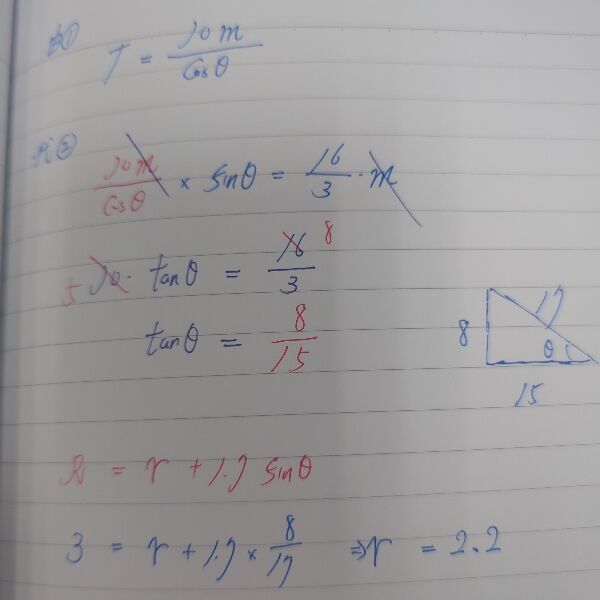 ① T = 10m / cosθ
② 10m / cosθ × sinθ = 16 / 3 · m
5 10 · tanθ = 16 8 / 3
tanθ = 8 / 15
8 17 θ
15
R = r + 1.7 sinθ
3 = r + 1.7 × 8 / 17 ⇒ r = 2.2